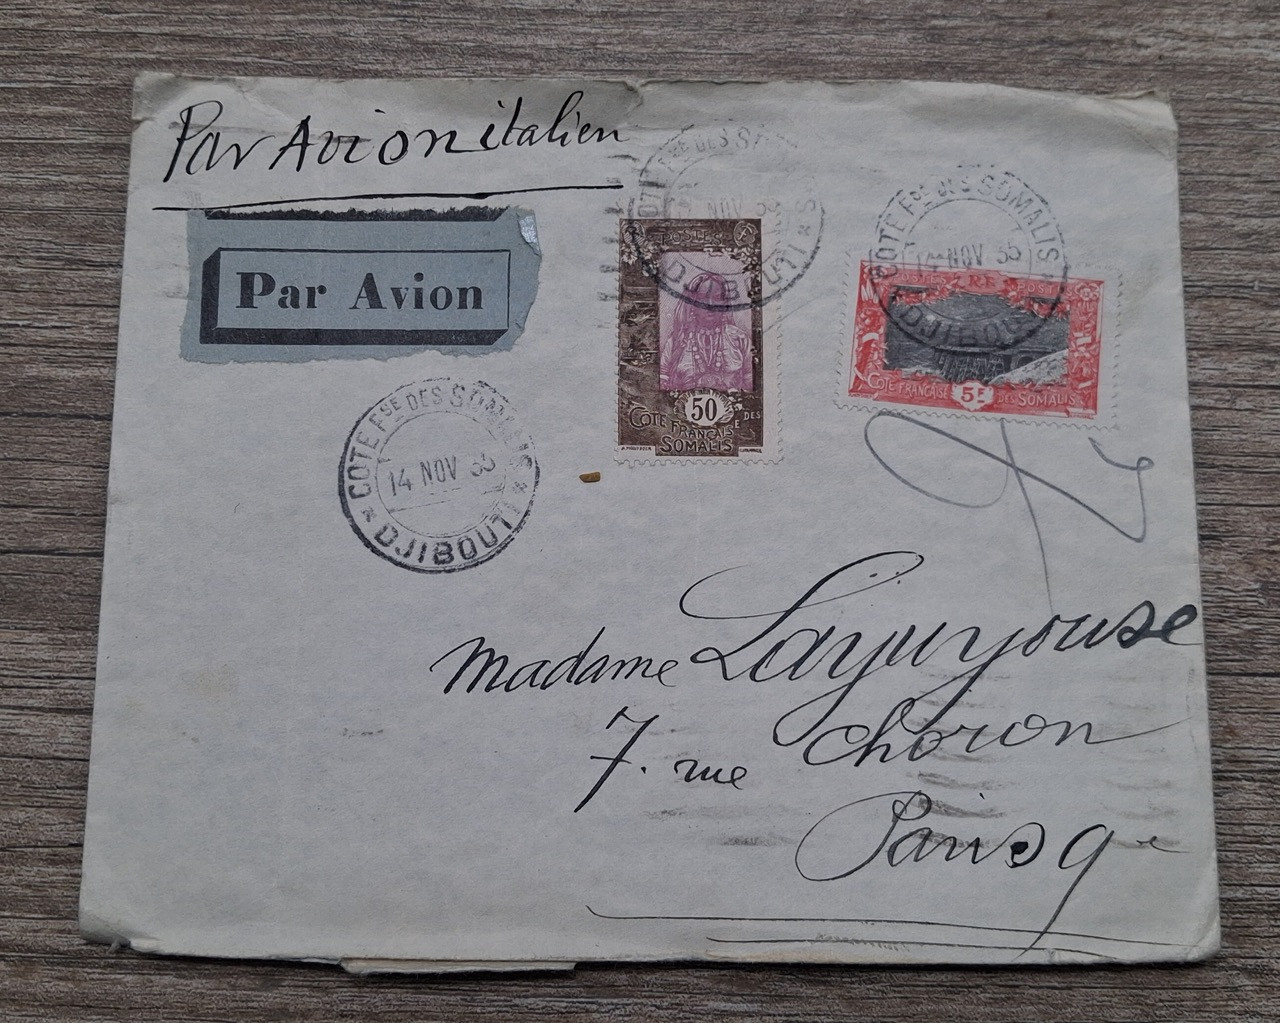 Par Avion italien
Par Avion
COTE Fse DES SOMALIS
14 NOV 35
DJIBOUTI
COTE Fse DES SOMALIS
14 NOV 35
* DJIBOUTI *
POSTES
50
COTE FRANÇAISE DES
SOMALIS
NOV 35
DJIBOUTI
RF POSTES
5F
COTE FRANÇAISE DES SOMALIS
Madame Layuyouse
7. rue Choron
Paris 9e